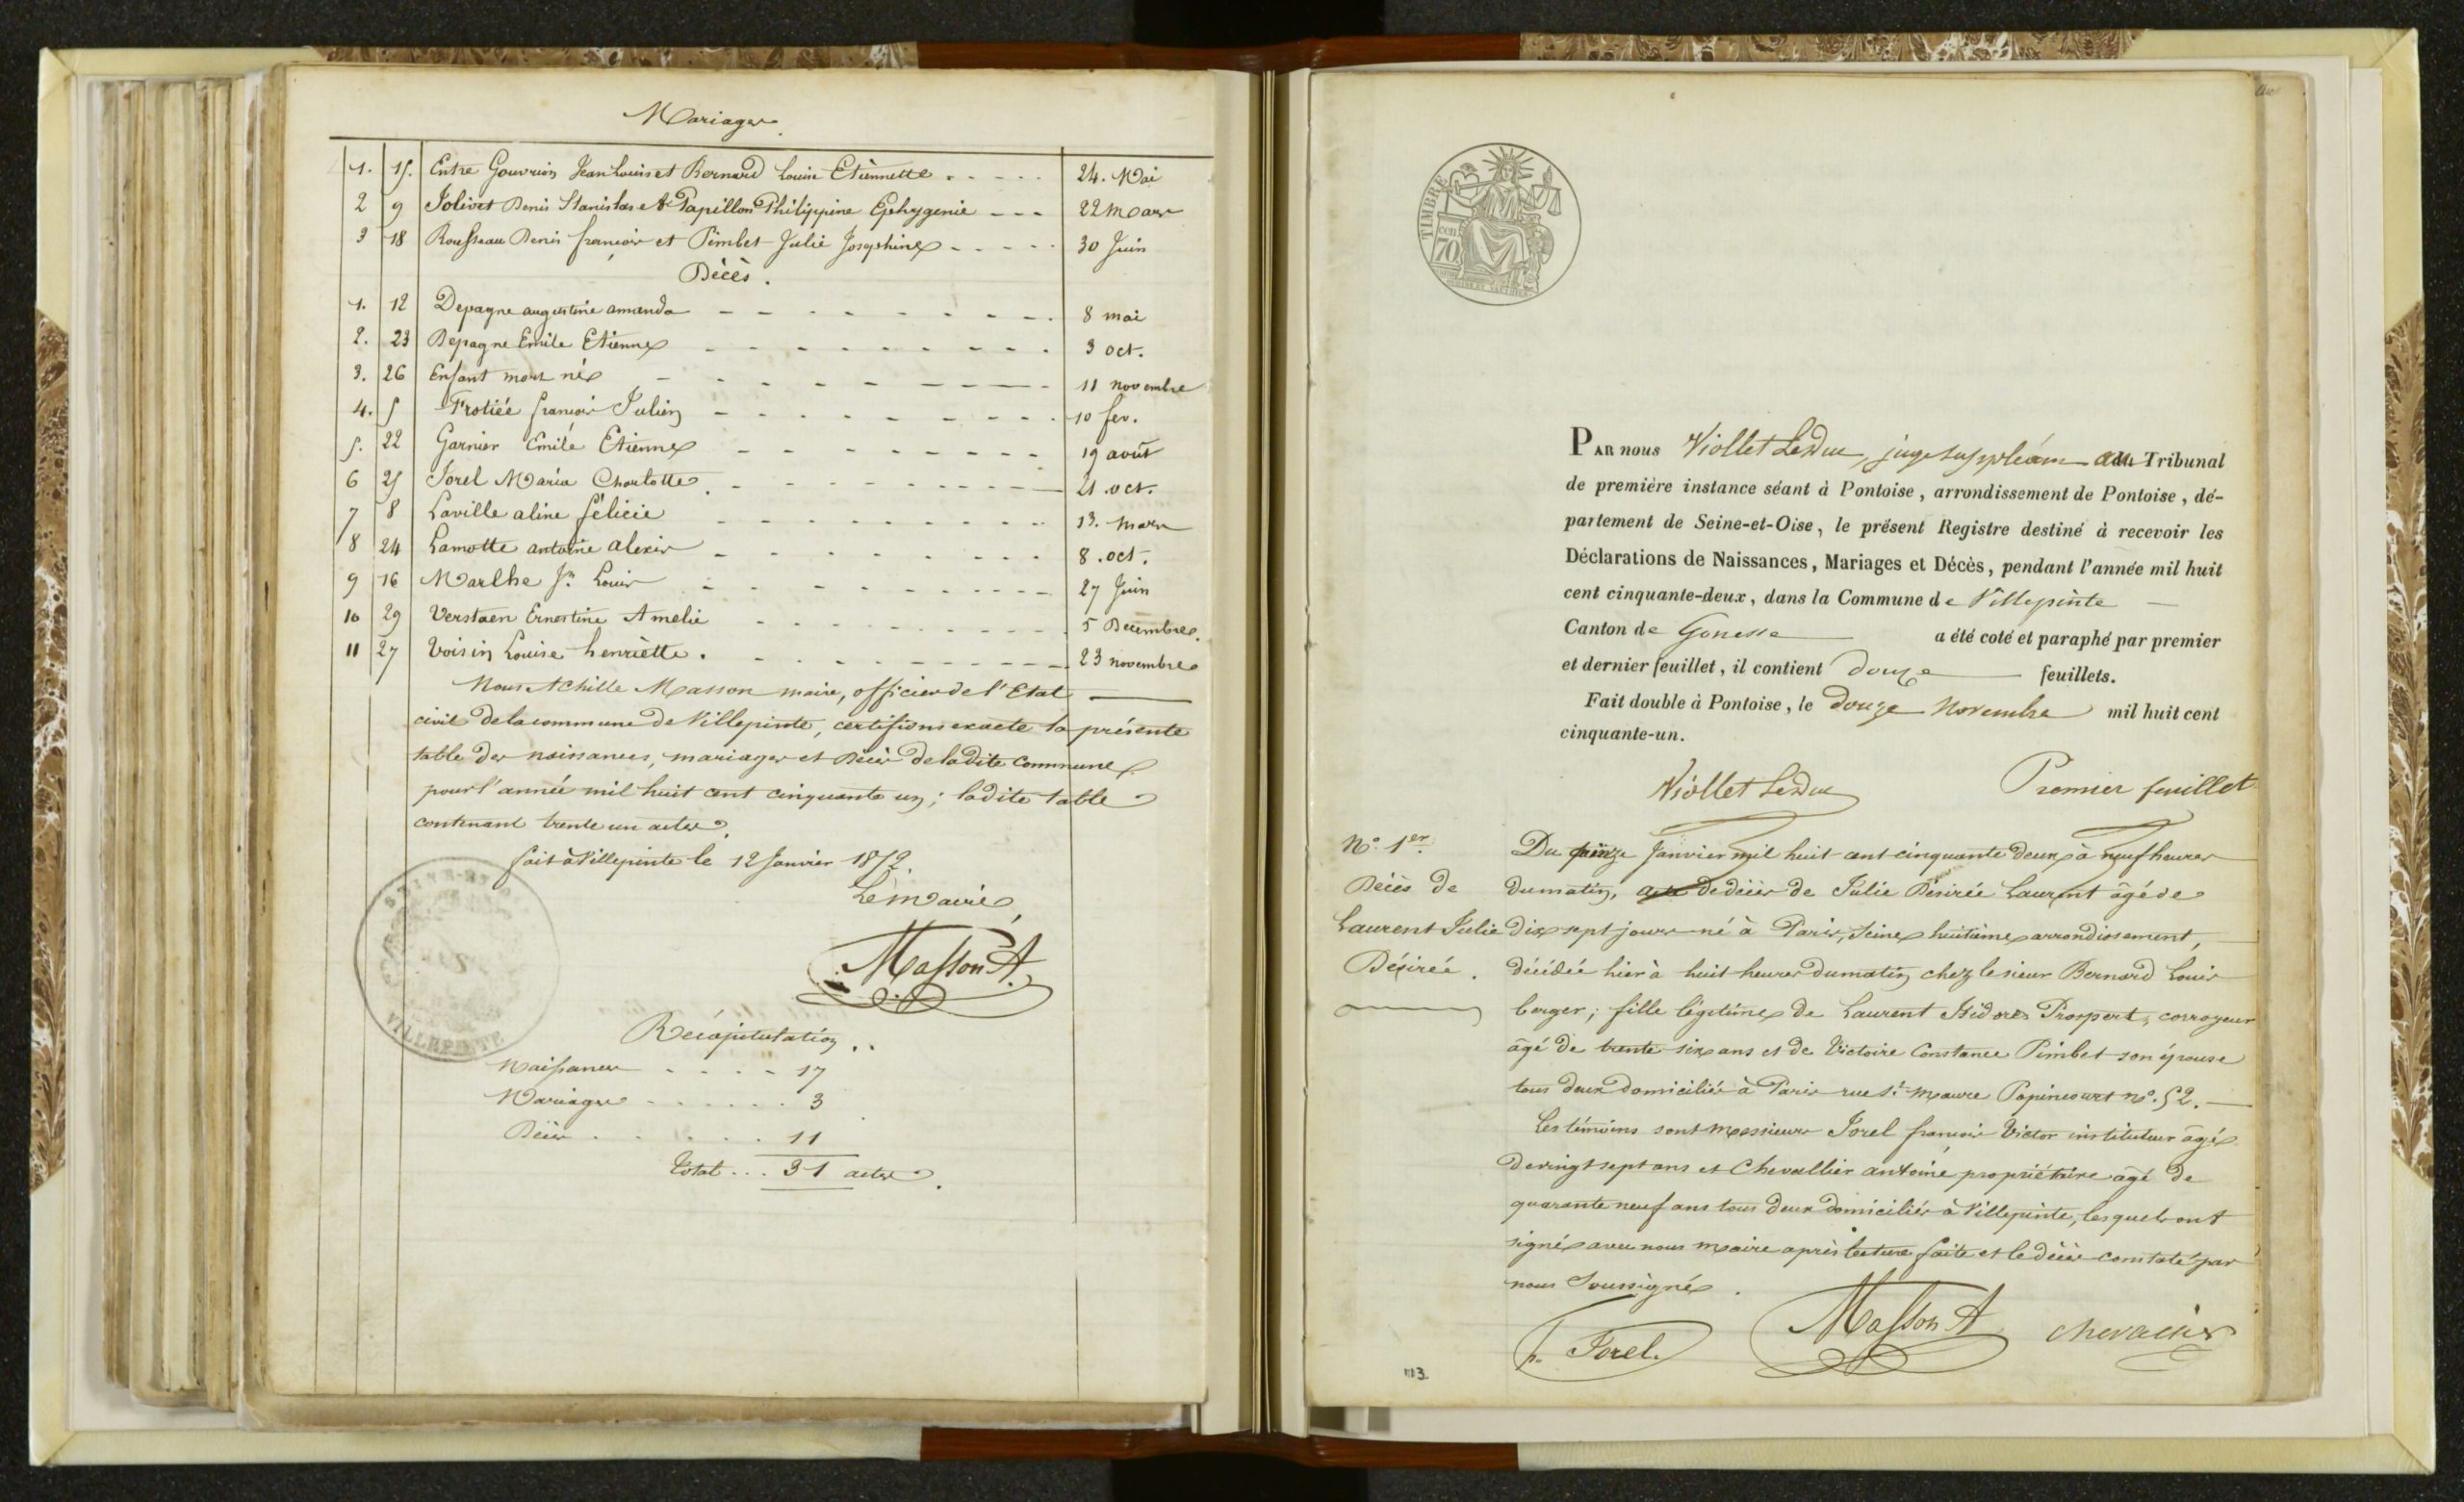 Mariages
1. 15. Entre Gouvrion Jean Louis et Bernard Louise Etiennette 24. Mai
2 9 Jolivet Denis Stanislas et Papillon Philippine Ephygenie 22 Mars
3 18 Rousseau Denis françois et Pimbet Julie Josephine 30 Juin
Décès.
1. 12 Depagne augustine amanda 8 mai
2. 23 Depagne Emile Etienne 3 oct.
3. 26 Enfant mort né 11 novembre
4. 5 Frotiée françois Julien 10 fev.
5. 22 Garnier Emile Etienne 19 août
6 25 Jorel Maria Charlotte 21 oct.
7 8 Laville aline félicie 13. mars
8 24 Lamotte antoine alexis 8. oct.
9 16 Marlhe Jn Louis 27 Juin
10 29 Verstaen Ernestine Amelie 5 Décembre.
11 27 Voisin Louise henriette. 23 novembre
Nous Achille Masson maire, officier de l'Etat
civil de la commune de Villepinte, certifions exacte la présente
table des naissances, mariages et décès de ladite commune
pour l'année mil huit cent cinquante un; ladite table
contenant trente un actes.
fait à Villepinte le 12 Janvier 1852.
Le Maire,
Masson A.
SEINE-ET-OISE
VILLEPINTE
Récapitulation..
Naissances 17
Mariages 3
Décès 11
Total... 31 actes.
TIMBRE
70 cen
PAR nous Viollet Leduc, juge suppléant au Tribunal
de première instance séant à Pontoise, arrondissement de Pontoise, dé-
partement de Seine-et-Oise, le présent Registre destiné à recevoir les
Déclarations de Naissances, Mariages et Décès, pendant l'année mil huit
cent cinquante-deux, dans la Commune de Villepinte
Canton de Gonesse a été coté et paraphé par premier
et dernier feuillet, il contient douze feuillets.
Fait double à Pontoise, le douze Novembre mil huit cent
cinquante-un.
Viollet Leduc
Premier feuillet
N° 1er
Décès de
Laurent Julie
Désirée.
Du Janvier mil huit cent cinquante deux à neuf heures
du matin, acte de décès de Julie Désirée Laurent âgé de
dix sept jours né à Paris, Seine huitième arrondissement,
décédée hier à huit heures du matin chez le sieur Bernard Louis
berger; fille légitime de Laurent Isidore Prospert, corroyeur
âgé de trente six ans et de Victoire Constance Pimbet son épouse
tous deux domiciliés à Paris rue St Maure Popincourt n°. 52.
Les témoins sont Messieurs Jorel françois Victor instituteur âgé
de vingt sept ans et Chevallier antoine propriétaire âgé de
quarante neuf ans tous deux domiciliés à Villepinte, lesquels ont
signé avec nous maire après lecture faite et le décès constaté par
nous Soussigné.
Jorel.
Masson A
chevallier
113